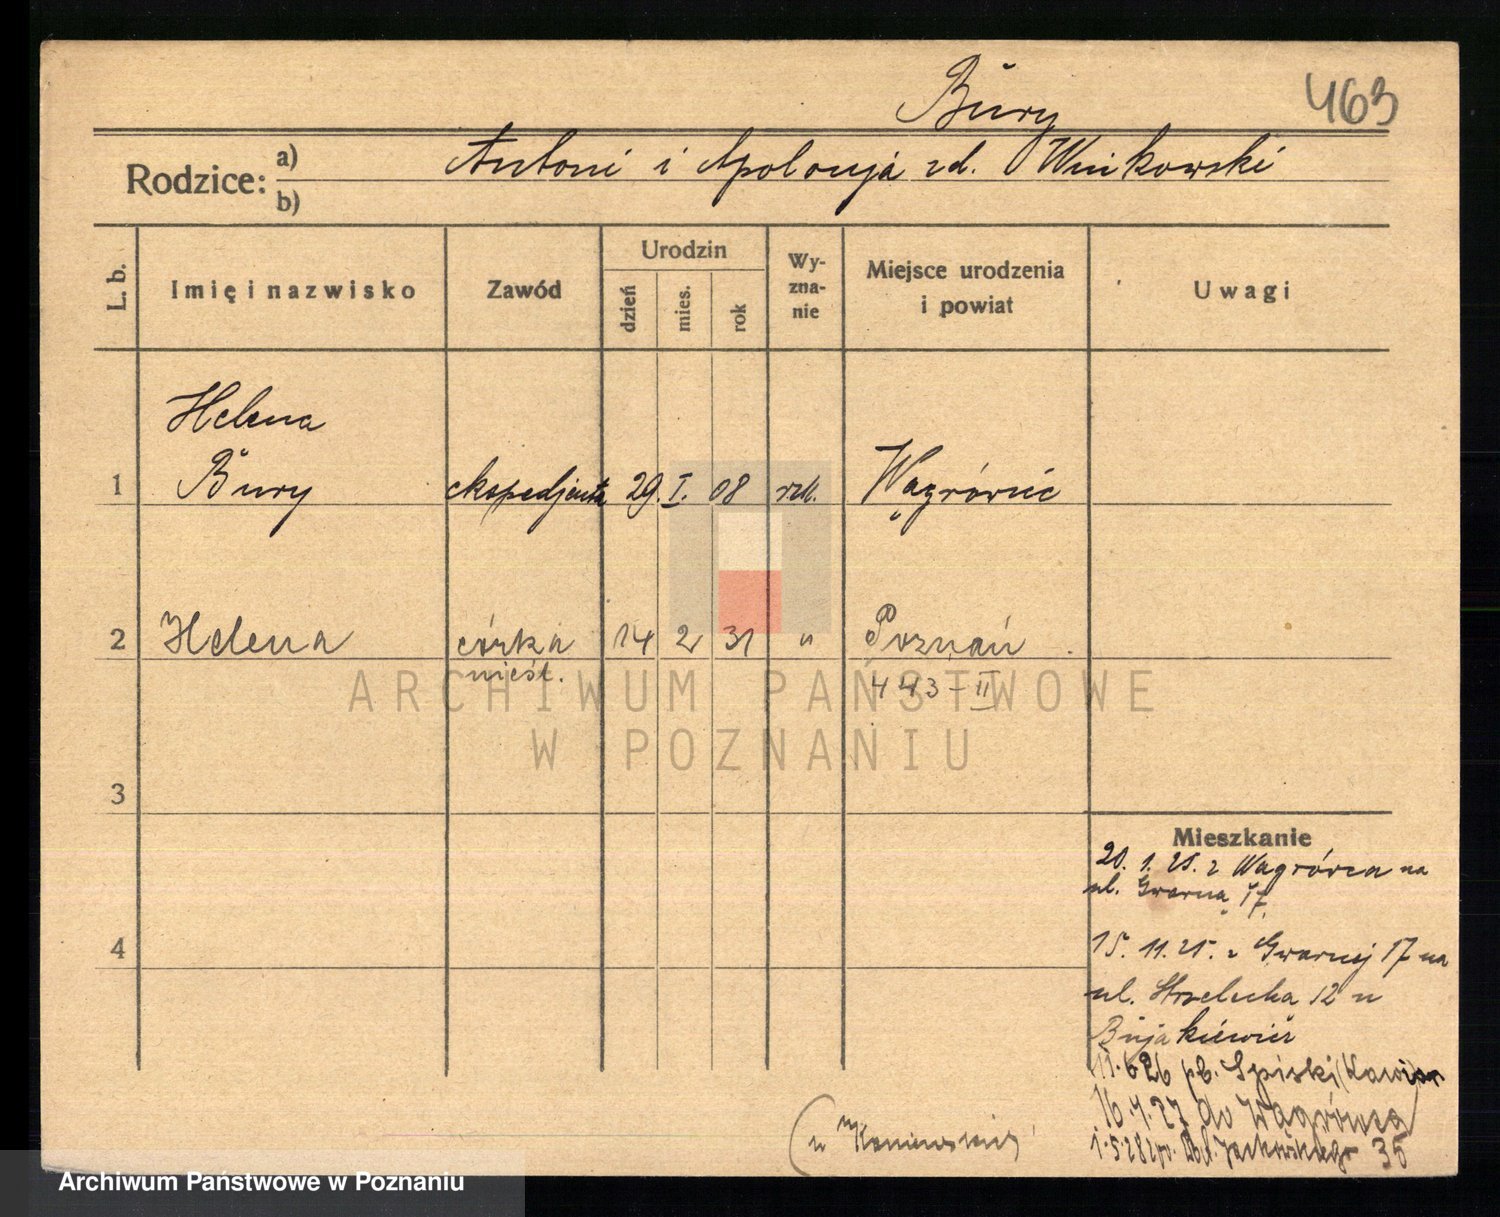 Bury
463
Rodzice:
a) Antoni i Apolonja zd. Winkowski
b)
L. b.
Imię i nazwisko
Zawód
Urodzin
dzień
mies.
rok
Wy-
zna-
nie
Miejsce urodzenia
i powiat
Uwagi
Helena
1 Bury ekspedjentka 29. I. 08 rzk. Wągrówiec
2 Helena córka 14 2 31 " Poznań
nieśl. 443-II
ARCHIWUM PAŃSTWOWE
W POZNANIU
3
Mieszkanie
20. 1. 25. z Wagrówca na
ul. Gwarną 17,
4
15. 11. 25. z Gwarnej 17 na
ul. Strzelecka 12 u
Bujakiewicz
11.6.26 Spiski
16.4.27 do Wągrówca
1.5.28 Jackowskiego 35
Archiwum Państwowe w Poznaniu